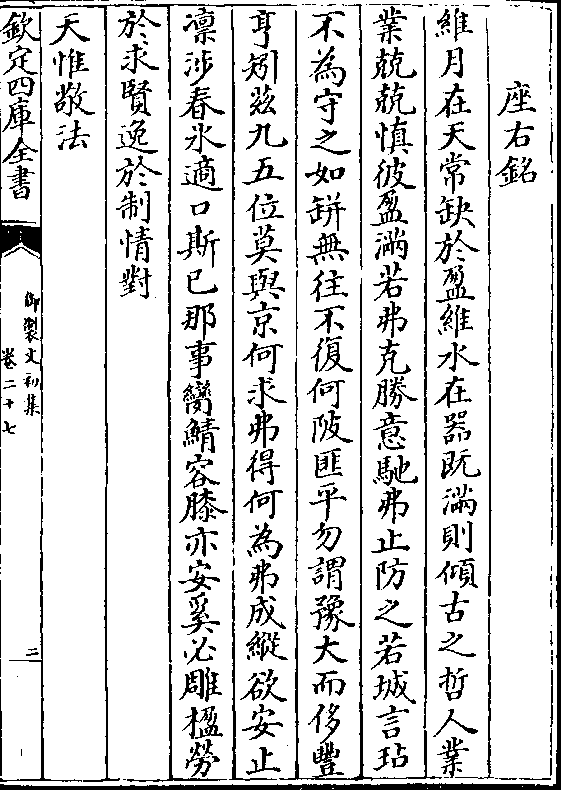 座右銘
維月在天常缺於盈維水在器既滿則傾古之哲人業
業兢兢慎彼盈滿若弗克勝意馳弗止防之若城言玷
不為守之如缾無往不復何陂匪平勿謂豫大而侈豐
亨矧茲九五位莫與京何求弗得何為弗成縱欲安止
凛涉春氷適口斯已那事臠鯖容膝亦安奚必雕楹勞
於求賢逸於制情對
天惟敬法
欽定四庫全書
御製文初集
卷二十七
三